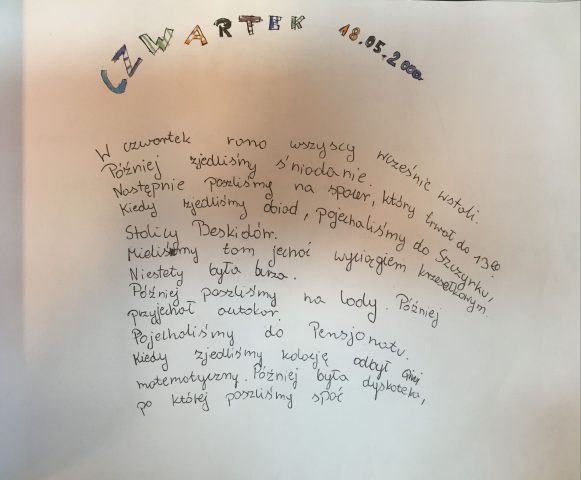 CZWARTEK 18.05.2000
W czwartek rano wszyscy wcześnie wstali.
Później zjedliśmy śniadanie.
Następnie poszliśmy na spacer, który trwał do 13⁰⁰
Kiedy zjedliśmy obiad, pojechaliśmy do Szczyrku,
Stolicy Beskidów.
Mieliśmy tam jechać wyciągiem krzesełkowym.
Niestety była burza.
Później poszliśmy na lody. Później
przyjechał autokar.
Pojechaliśmy do Pensjonatu.
Kiedy zjedliśmy kolację odbył się
matematyczny. Później była dyskoteka,
po której poszliśmy spać